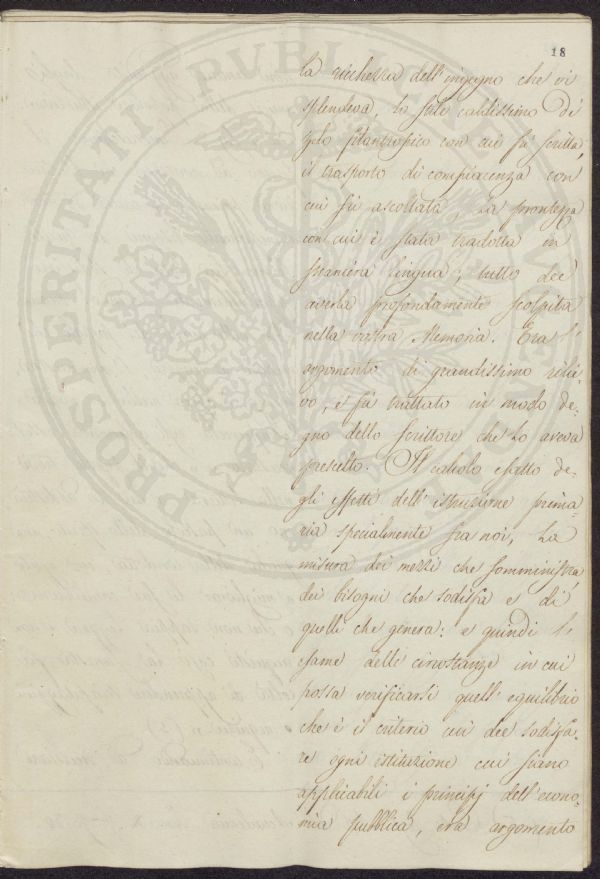 18
la ricchezza dell'ingegno che vi
splendeva, lo stile caldissimo di
zelo filantropico con cui fù scritta,
il trasporto di compiacenza con
cui fù ascoltata, la prontezza
con cui è stata tradotta in
straniera lingua, tutto deè
averla profondamente scolpita
nella vostra Memoria. Era l'
argomento di grandissimo rilie=
vo, e fù trattato in modo de=
gno dello Scrittore che lo aveva
prescelto. Il calcolo esatto de=
gli effetti dell'istruzione prima=
ria specialmente fra noi, la
misura dei mezzi che somministra,
dei bisogni che sodisfà e di
quelli che genera: e quindi l'
esame delle circostanze in cui
possa verificarsi quell'equilibrio
che è il criterio cui dee sodisfa=
re ogni istituzione cui siano
applicabili i principj dell'econo=
mia pubblica, era argomento
PROSPERITATI PVBLICAE